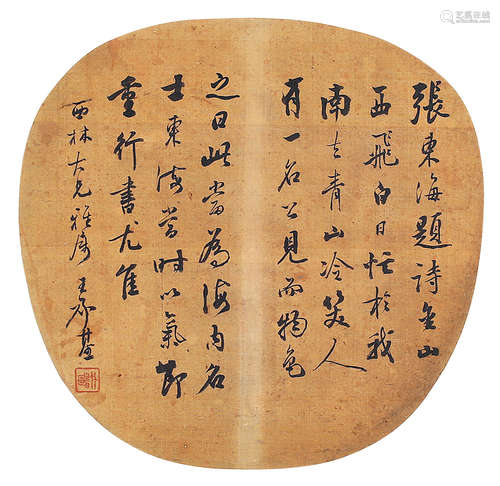 張東海題詩金山
西飛白日忙於我
南去青山冷笑人
有一名公見而物色
之曰此當為海內名
士東海當時以氣節
重行書尤佳
西林大兄雅屬 王